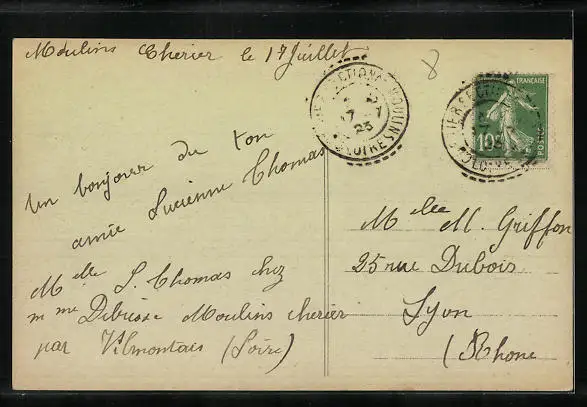 Moulins Cherier le 17 Juillet
8
MOULINS
17 -7
23
LOIRE
FRANÇAISE
10c
POSTES
LOIRE
Un bonjour de ton
amie Lucienne Thomas
Melle L. Thomas chez
mme Moulins cherier
par Vilmontais (Loire)
Melle M. Griffon
25 rue Dubois
Lyon
(Rhone